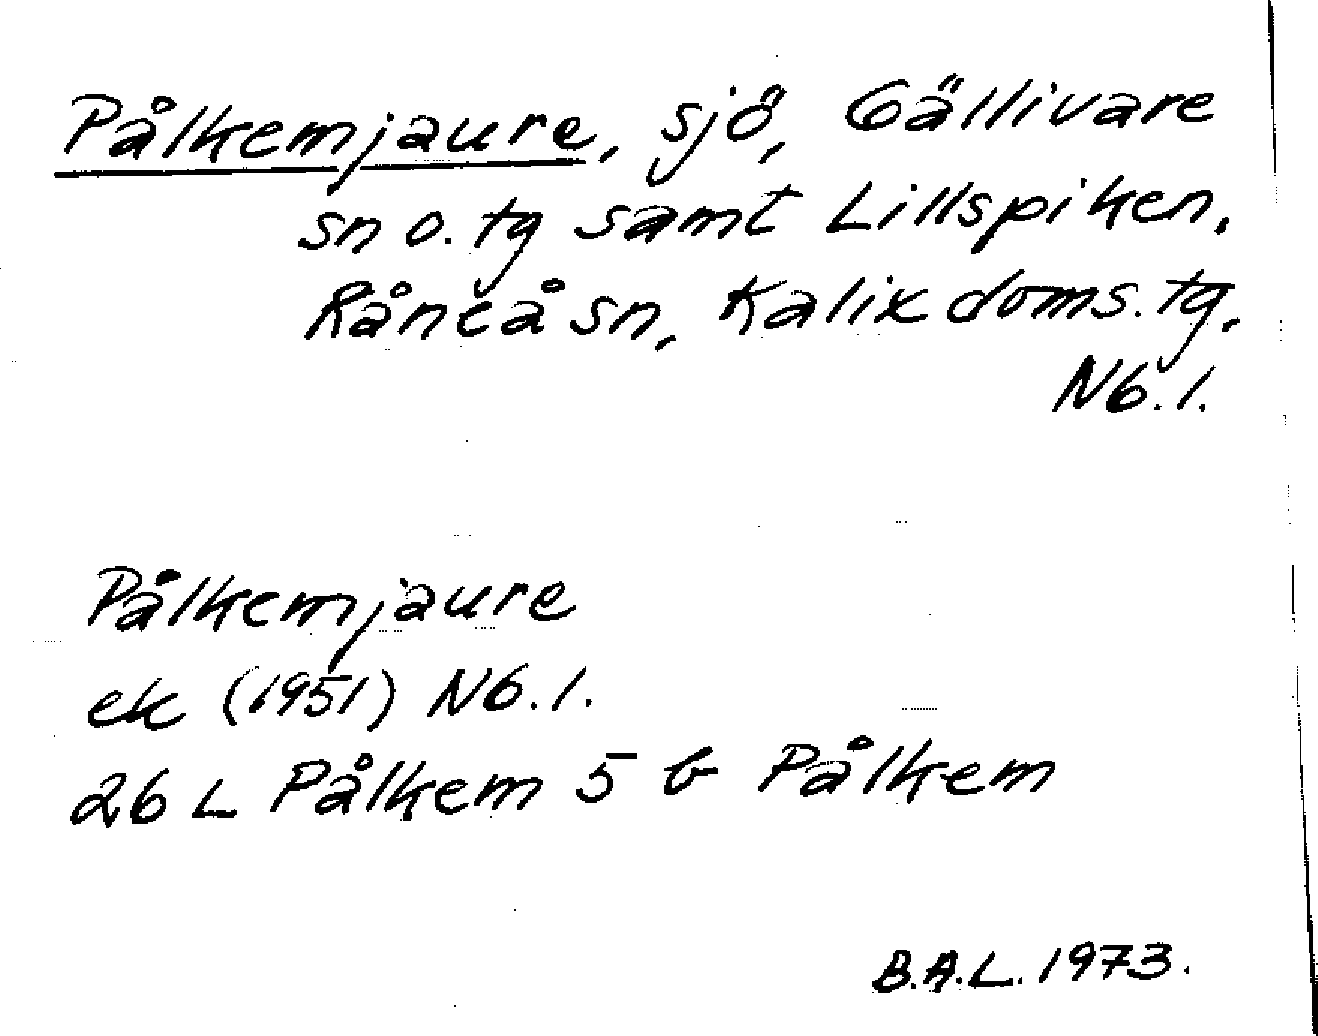 Pålkemjaure, sjö, Gällivare
sn o. tg samt Lillspiken,
Råneå sn, Kalix doms. tg,
Nb. l.
Pålkemjaure
ek (1951) Nb. l.
26 L Pålkem 5 b Pålkem
B.A.L. 1973.